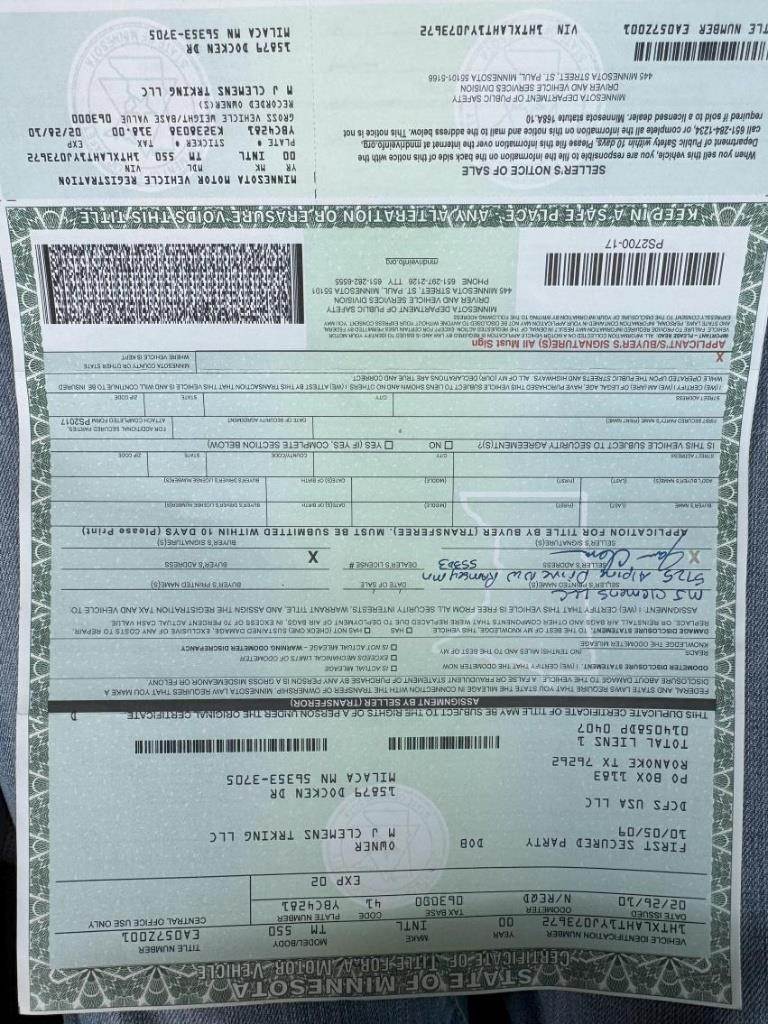 STATE OF MINNESOTA
CERTIFICATE OF TITLE FOR A MOTOR VEHICLE
VEHICLE IDENTIFICATION NUMBER YEAR MAKE MODEL/BODY TITLE NUMBER
1HTXLAHT1YJ073672 00 INTL TM 550 EA057Z001
DATE ISSUED ODOMETER TAX BASE CODE PLATE NUMBER CENTRAL OFFICE USE ONLY
02/26/10 N/REQD 063000 41 YBC4281
EXP 02
FIRST SECURED PARTY DOB OWNER
10/05/09 M J CLEMENS TRKING LLC
DCFS USA LLC
PO BOX 1183 15879 DOCKEN DR
ROANOKE TX 76262 MILACA MN 56353-3705
TOTAL LIENS 1
014058DP 0407
THIS DUPLICATE CERTIFICATE OF TITLE MAY BE SUBJECT TO THE RIGHTS OF A PERSON UNDER THE ORIGINAL CERTIFICATE. D
ASSIGNMENT BY SELLER (TRANSFEROR)
FEDERAL AND STATE LAWS REQUIRE THAT YOU STATE THE MILEAGE IN CONNECTION WITH THE TRANSFER OF OWNERSHIP. MINNESOTA LAW REQUIRES THAT YOU MAKE A
DISCLOSURE ABOUT DAMAGE TO THE VEHICLE. A FALSE OR FRAUDULENT STATEMENT OF PURCHASE BY ANY PERSON IS A GROSS MISDEMEANOR OR FELONY.
ODOMETER DISCLOSURE STATEMENT. I (WE) CERTIFY THAT THE ODOMETER NOW
READS NO TENTHS MILES AND TO THE BEST OF MY
KNOWLEDGE THE ODOMETER
IS ACTUAL MILEAGE
EXCEEDS MECHANICAL LIMITS OF ODOMETER
IS NOT ACTUAL MILEAGE - WARNING ODOMETER DISCREPANCY
DAMAGE DISCLOSURE STATEMENT: TO THE BEST OF MY KNOWLEDGE, THIS VEHICLE HAS HAS NOT (CHECK ONE) SUSTAINED DAMAGE, EXCLUSIVE OF ANY COSTS TO REPAIR,
REPLACE, OR REINSTALL AIR BAGS AND OTHER COMPONENTS THAT WERE REPLACED DUE TO DEPLOYMENT OF AIR BAGS, IN EXCESS OF 70 PERCENT ACTUAL CASH VALUE.
ASSIGNMENT: I (WE) CERTIFY THAT THIS VEHICLE IS FREE FROM ALL SECURITY INTERESTS, WARRANT TITLE, AND ASSIGN THE REGISTRATION TAX AND VEHICLE TO
MJ Clemens LLC
SELLER'S PRINTED NAME(S) DATE OF SALE BUYER'S PRINTED NAME(S)
5725 Alpine Drive NW Ramsey mn 55303
SELLER'S ADDRESS DEALER'S LICENSE # BUYER'S ADDRESS
X X
SELLER'S SIGNATURE(S) BUYER'S SIGNATURE(S)
APPLICATION FOR TITLE BY BUYER (TRANSFEREE). MUST BE SUBMITTED WITHIN 10 DAYS (Please Print)
BUYER'S NAME (LAST) (FIRST) (MIDDLE) DATE(S) OF BIRTH BUYER'S DRIVER'S LICENSE NUMBER(S)
ADD'L BUYER'S NAME(S) (LAST) (FIRST) (MIDDLE) DATE(S) OF BIRTH BUYER'S DRIVER'S LICENSE NUMBER(S)
STREET ADDRESS CITY COUNTY/CODE STATE ZIP CODE
IS THIS VEHICLE SUBJECT TO SECURITY AGREEMENT(S)? NO YES (IF YES, COMPLETE SECTION BELOW)
FIRST SECURED PARTY'S NAME (PRINT NAME) DATE OF SECURITY AGREEMENT FOR ADDITIONAL SECURED PARTIES,
ATTACH COMPLETED FORM PS2017
STREET ADDRESS CITY STATE ZIP CODE
I (WE) CERTIFY I (WE AM) ARE) OF LEGAL AGE, HAVE PURCHASED THIS VEHICLE SUBJECT TO LIENS SHOWN AND NO OTHERS. I (WE) ATTEST BY THIS TRANSACTION THAT THIS VEHICLE IS AND WILL CONTINUE TO BE INSURED
WHILE OPERATED UPON THE PUBLIC STREETS AND HIGHWAYS. ALL OF MY (OUR) DECLARATIONS ARE TRUE AND CORRECT
X
APPLICANT'S/BUYER'S SIGNATURE(S) All Must Sign
MINNESOTA COUNTY OR OTHER STATE
WHERE VEHICLE KEPT
MINNESOTA DEPARTMENT OF PUBLIC SAFETY
DRIVER AND VEHICLE SERVICES DIVISION
445 MINNESOTA STREET, ST. PAUL, MINNESOTA 55101
PHONE 651-297-2126 TTY 651-282-6555
mndriveinfo.org
PS2700-17
KEEP IN A SAFE PLACE - ANY ALTERATION OR ERASURE VOIDS THIS TITLE
SELLER'S NOTICE OF SALE
When you sell this vehicle, you are responsible to file the information on the back side of this notice with the
Department of Public Safety within 10 days. Please file this information over the internet at mndriveinfo.org,
call 651-284-1234, or complete all the information on this notice and mail to the address below. This notice is not
required if sold to a licensed dealer. Minnesota statute 168A.10
MINNESOTA DEPARTMENT OF PUBLIC SAFETY
DRIVER AND VEHICLE SERVICES DIVISION
445 MINNESOTA STREET, ST. PAUL, MN 55101-5168
TLE NUMBER EA057Z001 VIN 1HTXLAHT1YJ073672
MINNESOTA MOTOR VEHICLE REGISTRATION
YR MK MDL VIN
00 INTL TM 550 1HTXLAHT1YJ073672
PLATE # STICKER # TAX EXP
YBC4281 K3238036 318.00 02/28/10
GROSS VEHICLE WEIGHT/BASE VALUE 063000
RECORDED OWNER(S)
M J CLEMENS TRKING LLC
15879 DOCKEN DR
MILACA MN 56353-3705